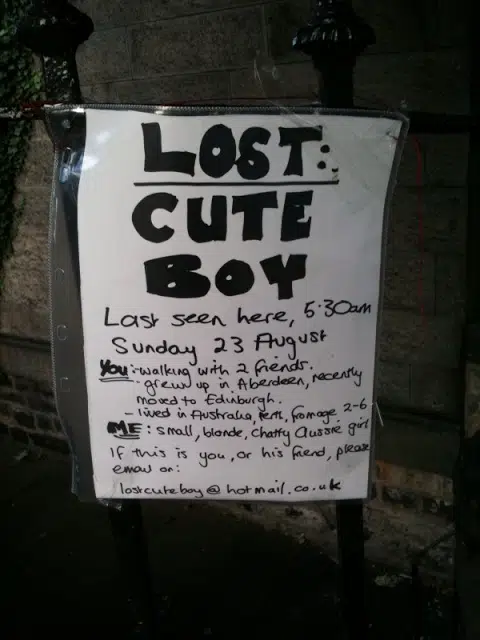 LOST:
CUTE
BOY
Last seen here, 5:30am
Sunday 23 August
You: - walking with 2 friends.
- grew up in Aberdeen, recently
moved to Edinburgh.
- lived in Australia, Perth, from age 2-6
ME: small, blonde, chatty Aussie girl
If this is you, or his friend, please
email on:
lostcuteboy@hotmail.co.uk